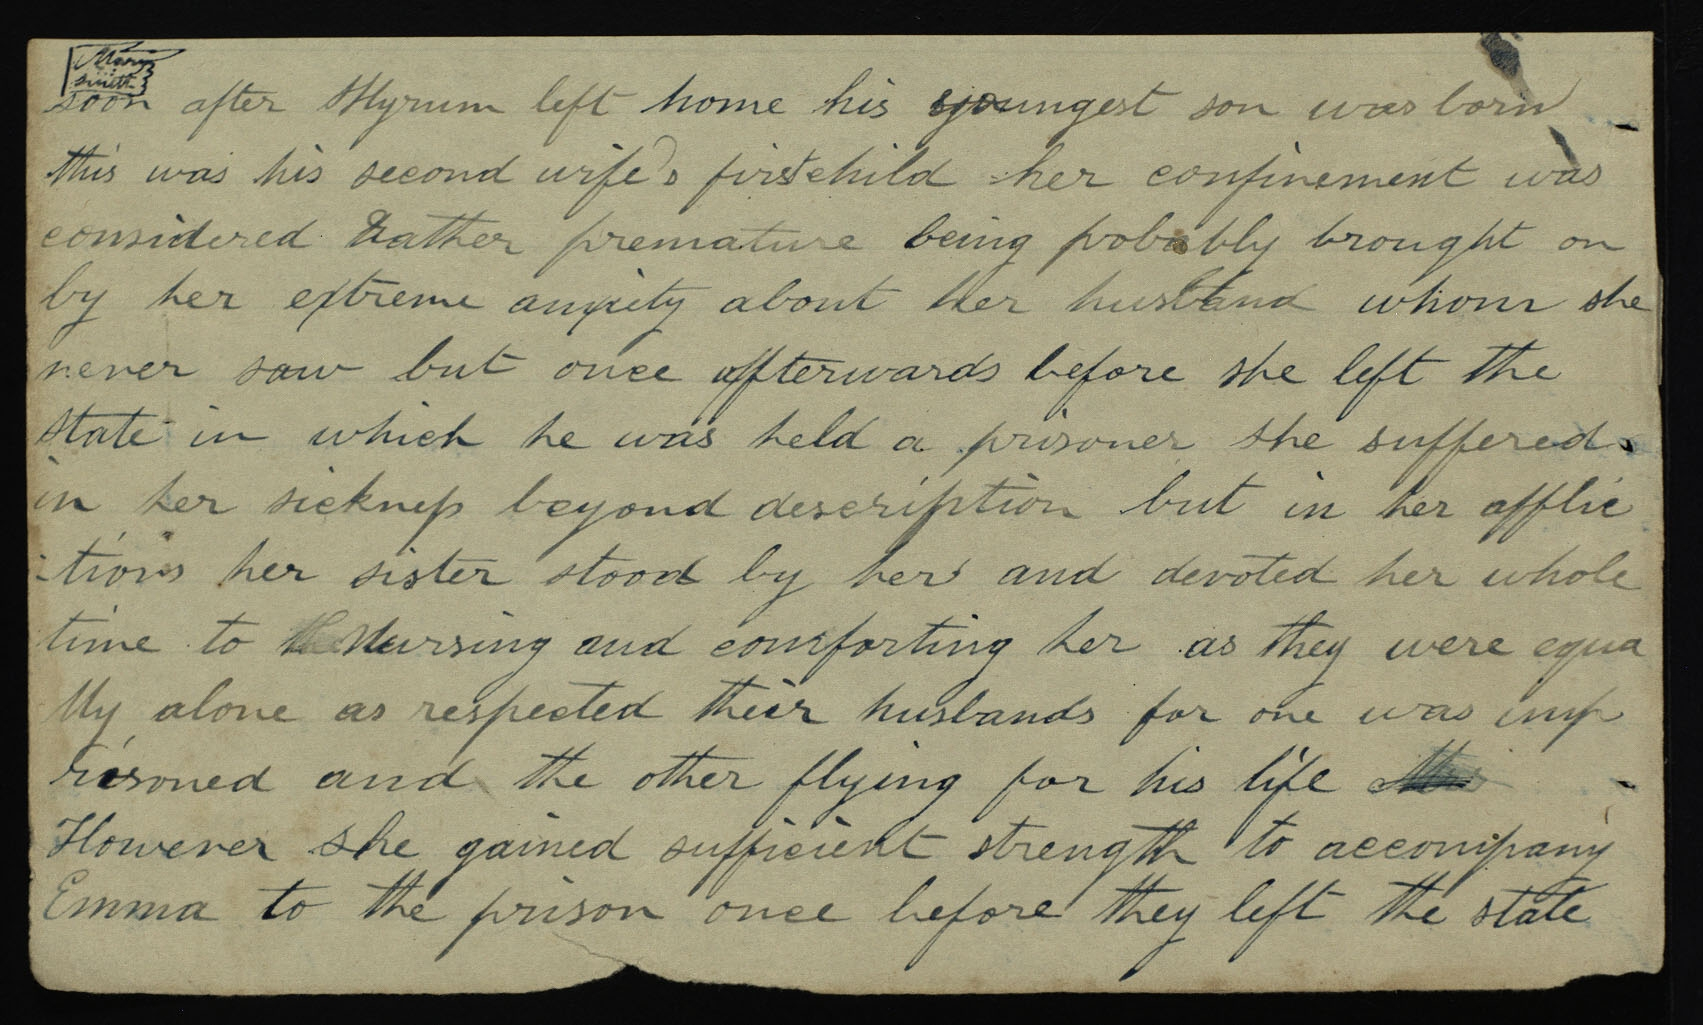 Mary
Smith
soon after Hyrum left home his youngest son was born
this was his second wife's first child her confinement was
considered rather premature being probably brought on
by her extreme anxity about her husband whom she
never saw but once afterwards before she left the
state in which he was held a prisoner she suffered
in her sickness beyond description but in her afflic
-tions her sister stood by her and devoted her whole
time to the Nursing and comforting her as they were equa
lly alone as respected their husbands for one was imp
risoned and the other flying for his life
However she gained sufficient strength to accompany
Emma to the prison once before they left the state